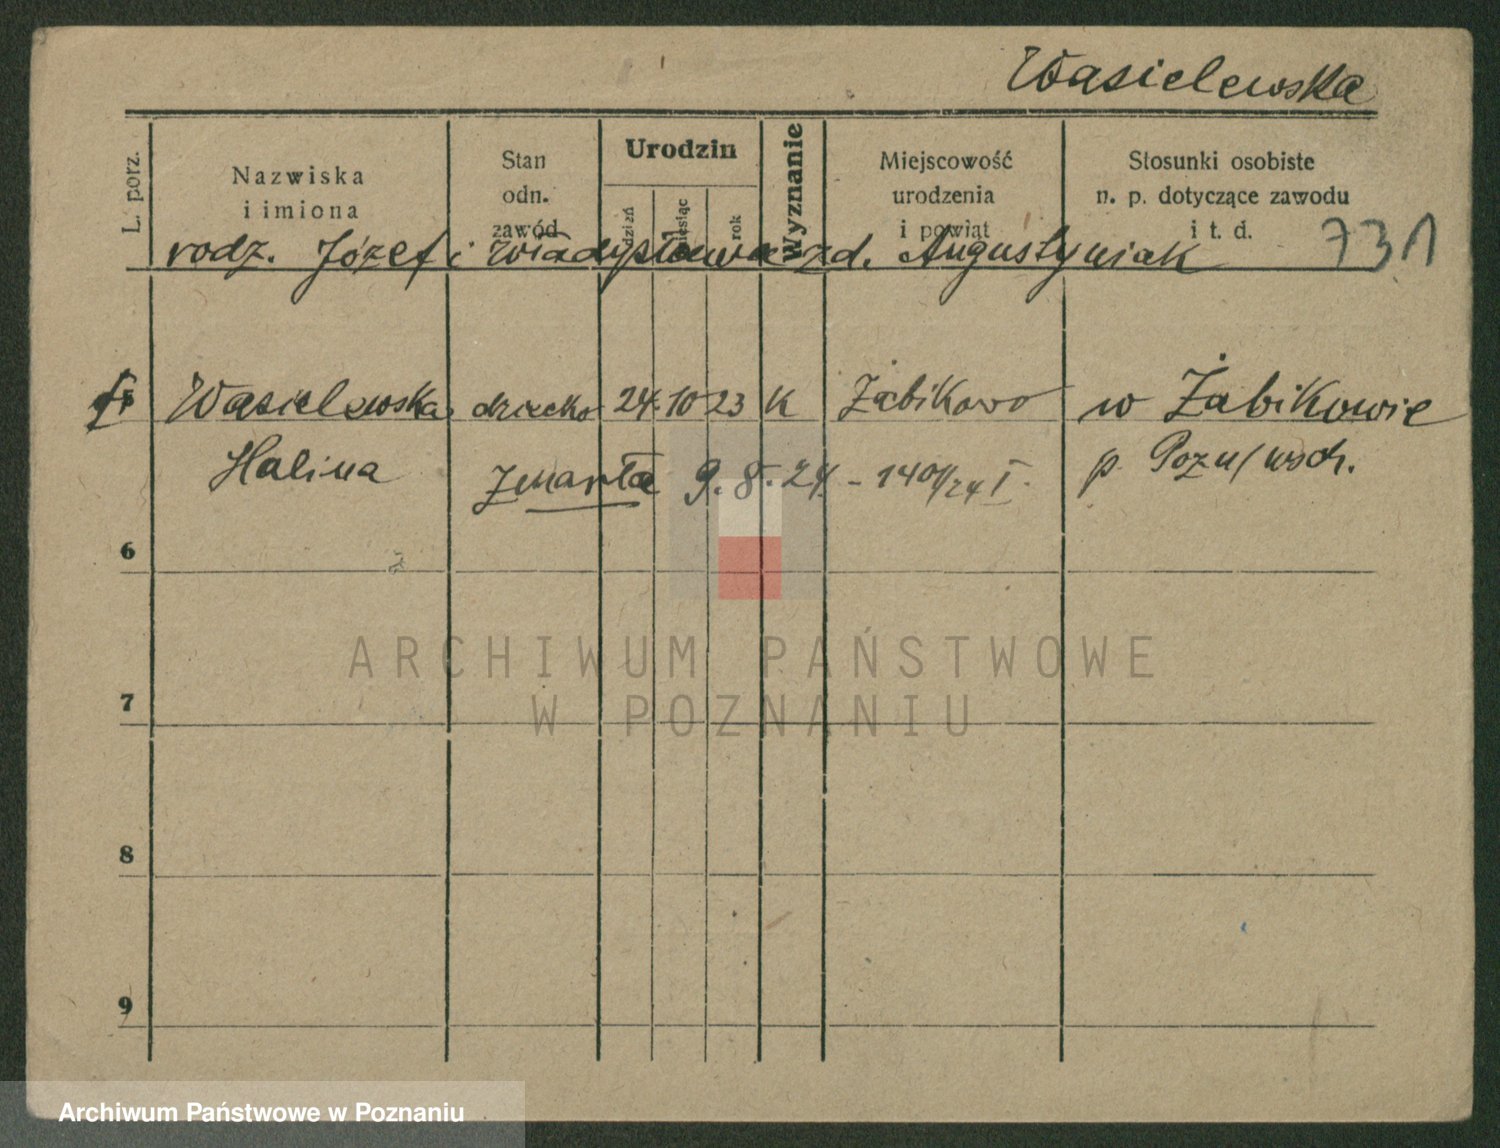 Wasielewska
L. porz.
Nazwiska
i imiona
Stan
odn.
zawód
Urodzin
dzień
miesiąc
rok
Wyznanie
Miejscowość
urodzenia
i powiąt
Stosunki osobiste
n. p. dotyczące zawodu
i t. d.
731
rodz. Józef i Władysława zd. Augustyniak
Wasielewska dziecko 24. 10 23 K Żabikowo w Żabikowie
Halina Zmarła 9. 8. 24 - p. Pozn/wsch.
6
7
8
9
ARCHIWUM PAŃSTWOWE
W POZNANIU
Archiwum Państwowe w Poznaniu